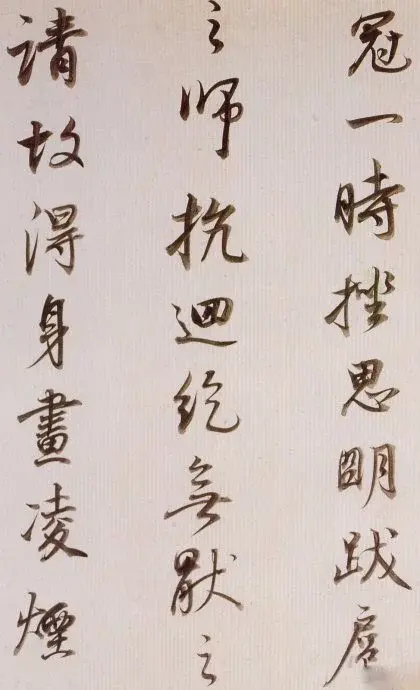 冠一時挫思明跋扈
之师抗迴紇無猒之
請故得身畫凌煙